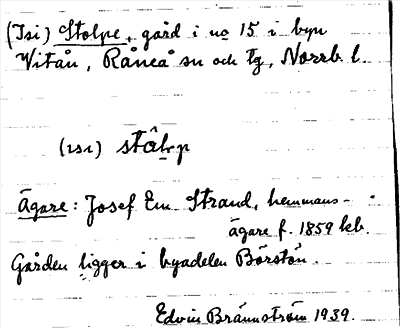 (Isi) Stolpe, gård i no 15 i byn
Vitån, Råneå sn och tg, Norrb. l.
(ısı) stâḷp
Ägare: Josef Em. Strand, hemmans-
ägare f. 1859 kb.
Gården ligger i byadelen Börstön.
Edvin Brännström 1939.